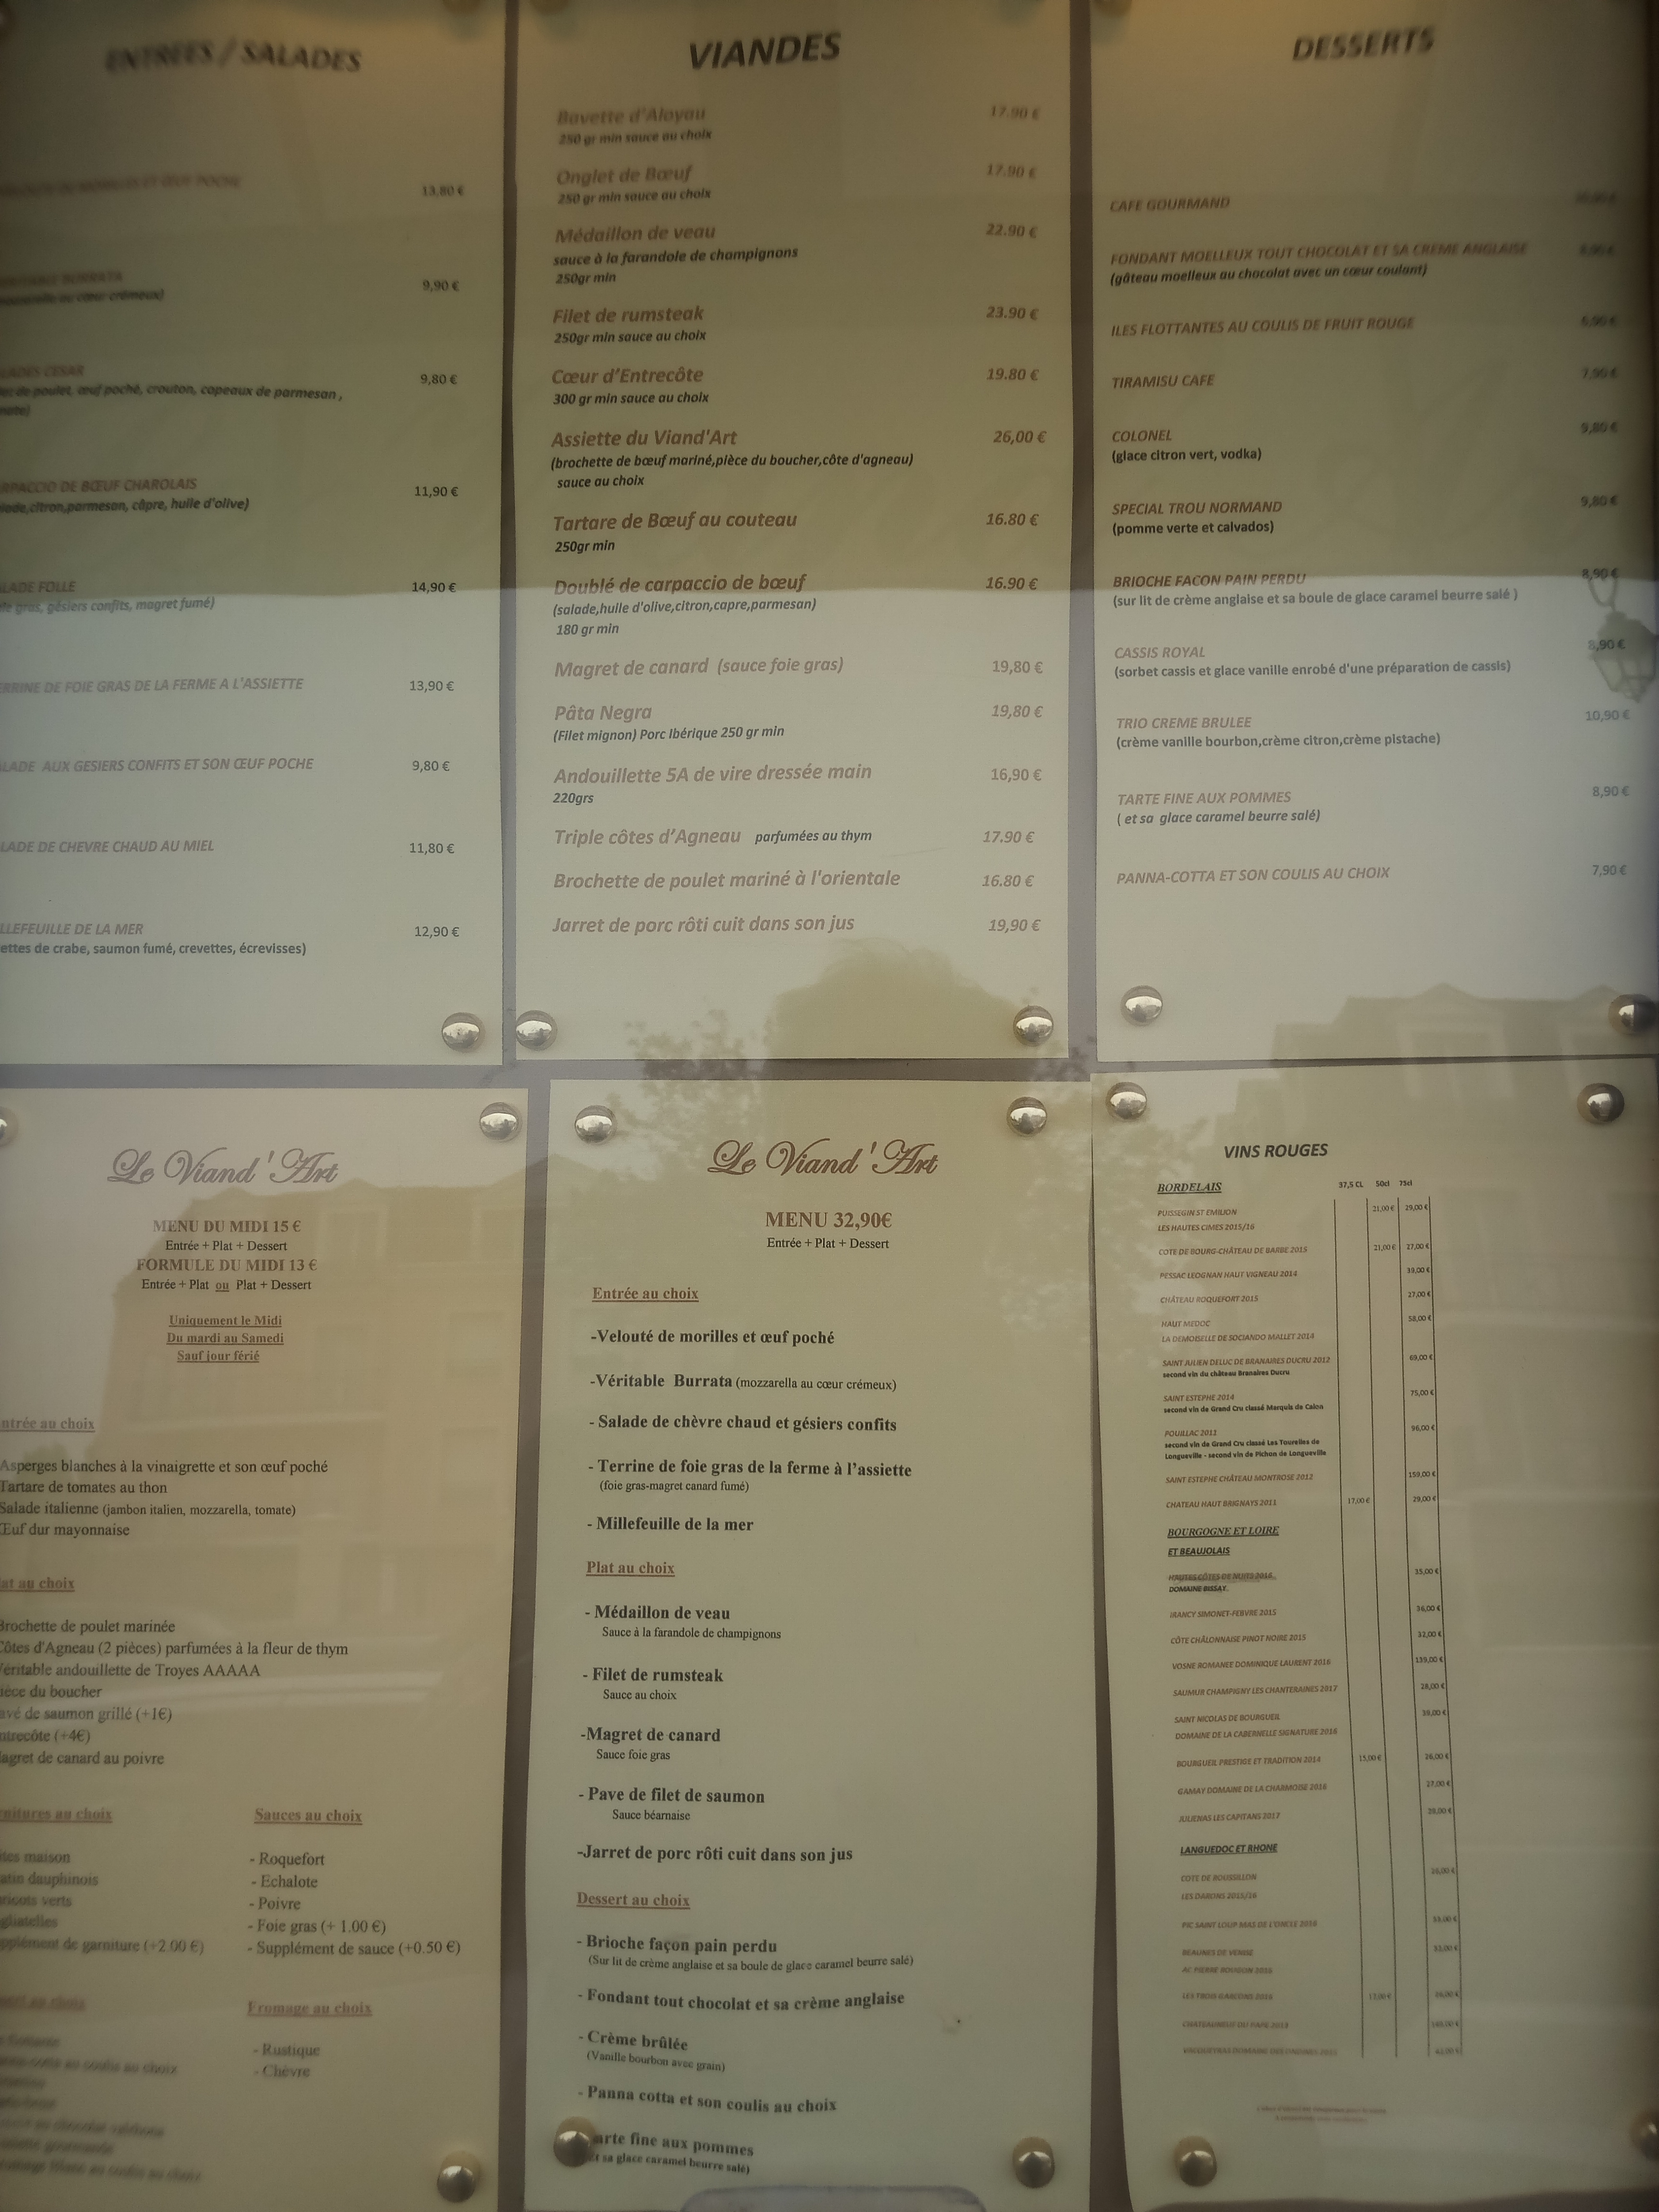 ENTREES / SALADES
ET ŒUF POCHE 13,80 €
BURRATA 9,90 €
au cœur crémeux)
CESAR 9,80 €
de poulet, œuf poché, crouton, copeaux de parmesan ,
RPACCIO DE BŒUF CHAROLAIS 11,90 €
lade,citron,parmesan, câpre, huile d'olive)
LADE FOLLE 14,90 €
gras, gésiers confits, magret fumé)
ERRINE DE FOIE GRAS DE LA FERME A L'ASSIETTE 13,90 €
LADE AUX GESIERS CONFITS ET SON ŒUF POCHE 9,80 €
LADE DE CHEVRE CHAUD AU MIEL 11,80 €
LLEFEUILLE DE LA MER 12,90 €
ettes de crabe, saumon fumé, crevettes, écrevisses)
VIANDES
Bavette d'Aloyau 17.90 €
250 gr min sauce au choix
Onglet de Bœuf 17.90 €
250 gr min sauce au choix
Médaillon de veau 22.90 €
sauce à la farandole de champignons
250gr min
Filet de rumsteak 23.90 €
250gr min sauce au choix
Cœur d'Entrecôte 19.80 €
300 gr min sauce au choix
Assiette du Viand'Art 26,00 €
(brochette de bœuf mariné,pièce du boucher,côte d'agneau)
sauce au choix
Tartare de Bœuf au couteau 16.80 €
250gr min
Doublé de carpaccio de bœuf 16.90 €
(salade,huile d'olive,citron,capre,parmesan)
180 gr min
Magret de canard (sauce foie gras) 19,80 €
Pâta Negra 19,80 €
(Filet mignon) Porc Ibérique 250 gr min
Andouillette 5A de vire dressée main 16,90 €
220grs
Triple côtes d'Agneau parfumées au thym 17.90 €
Brochette de poulet mariné à l'orientale 16.80 €
Jarret de porc rôti cuit dans son jus 19,90 €
DESSERTS
CAFE GOURMAND
FONDANT MOELLEUX TOUT CHOCOLAT ET SA CREME ANGLAISE
(gâteau moelleux au chocolat avec un cœur coulant)
ILES FLOTTANTES AU COULIS DE FRUIT ROUGE 6,90 €
TIRAMISU CAFE 7,90 €
COLONEL 9,80 €
(glace citron vert, vodka)
SPECIAL TROU NORMAND 9,80 €
(pomme verte et calvados)
BRIOCHE FACON PAIN PERDU 8,90 €
(sur lit de crème anglaise et sa boule de glace caramel beurre salé )
CASSIS ROYAL 8,90 €
(sorbet cassis et glace vanille enrobé d'une préparation de cassis)
TRIO CREME BRULEE 10,90 €
(crème vanille bourbon,crème citron,crème pistache)
TARTE FINE AUX POMMES 8,90 €
( et sa glace caramel beurre salé)
PANNA-COTTA ET SON COULIS AU CHOIX 7,90 €
Le Viand'Art
MENU DU MIDI 15 €
Entrée + Plat + Dessert
FORMULE DU MIDI 13 €
Entrée + Plat ou Plat + Dessert
Uniquement le Midi
Du mardi au Samedi
Sauf jour férié
ntrée au choix
Asperges blanches à la vinaigrette et son œuf poché
Tartare de tomates au thon
Salade italienne (jambon italien, mozzarella, tomate)
Œuf dur mayonnaise
at au choix
Brochette de poulet marinée
Côtes d'Agneau (2 pièces) parfumées à la fleur de thym
Véritable andouillette de Troyes AAAAA
ièce du boucher
avé de saumon grillé (+1€)
ntrecôte (+4€)
agret de canard au poivre
nitures au choix Sauces au choix
ites maison - Roquefort
atin dauphinois - Echalote
ricots verts - Poivre
gliatelles - Foie gras (+ 1.00 €)
pplément de garniture (+2.00 €) - Supplément de sauce (+0.50 €)
Fromage au choix
- Rustique
au coulis au choix - Chèvre
Le Viand'Art
MENU 32,90€
Entrée + Plat + Dessert
Entrée au choix
-Velouté de morilles et œuf poché
-Véritable Burrata (mozzarella au cœur crémeux)
- Salade de chèvre chaud et gésiers confits
- Terrine de foie gras de la ferme à l'assiette
(foie gras-magret canard fumé)
- Millefeuille de la mer
Plat au choix
- Médaillon de veau
Sauce à la farandole de champignons
- Filet de rumsteak
Sauce au choix
-Magret de canard
Sauce foie gras
- Pave de filet de saumon
Sauce béarnaise
-Jarret de porc rôti cuit dans son jus
Dessert au choix
- Brioche façon pain perdu
(Sur lit de crème anglaise et sa boule de glace caramel beurre salé)
- Fondant tout chocolat et sa crème anglaise
- Crème brûlée
(Vanille bourbon avec grain)
- Panna cotta et son coulis au choix
arte fine aux pommes
et sa glace caramel beurre salé)
VINS ROUGES
BORDELAIS 37,5 CL 50cl 75cl
PUISSEGIN ST EMILION 21,00 € 29,00 €
LES HAUTES CIMES 2015/16
COTE DE BOURG-CHÂTEAU DE BARBE 2015 21,00 € 27,00 €
PESSAC LEOGNAN HAUT VIGNEAU 2014 39,00 €
CHÂTEAU ROQUEFORT 2015 27,00 €
HAUT MEDOC 58,00 €
LA DEMOISELLE DE SOCIANDO MALLET 2014
SAINT JULIEN DELUC DE BRANAIRES DUCRU 2012 69,00 €
second vin du château Branaires Ducru
SAINT ESTEPHE 2014 75,00 €
second vin de Grand Cru classé Marquis de Calon
POUILLAC 2011 96,00 €
second vin de Grand Cru classé Les Tourelles de
Longueville - second vin de Pichon de Longueville
SAINT ESTEPHE CHÂTEAU MONTROSE 2012 159,00 €
CHATEAU HAUT BRIGNAYS 2011 17,00 € 29,00 €
BOURGOGNE ET LOIRE
ET BEAUJOLAIS
HAUTES CÔTES DE NUITS 2016 35,00 €
DOMAINE BISSAY
IRANCY SIMONET-FEBVRE 2015 36,00 €
CÔTE CHÂLONNAISE PINOT NOIRE 2015 32,00 €
VOSNE ROMANEE DOMINIQUE LAURENT 2016 139,00 €
SAUMUR CHAMPIGNY LES CHANTERAINES 2017 28,00 €
SAINT NICOLAS DE BOURGUEIL 38,00 €
DOMAINE DE LA CABERNELLE SIGNATURE 2016
BOURGUEIL PRESTIGE ET TRADITION 2014 15,00 € 26,00 €
GAMAY DOMAINE DE LA CHARMOISE 2016 27,00 €
JULIENAS LES CAPITANS 2017 29,00 €
LANGUEDOC ET RHONE
COTE DE ROUSSILLON
LES DARONS 2015/16
PIC SAINT LOUP MAS DE L'ONCLE 2016
BEAUNES DE VENISE
LES TROIS GARCONS 2016
CHATEAUNEUF DU PAPE 2013